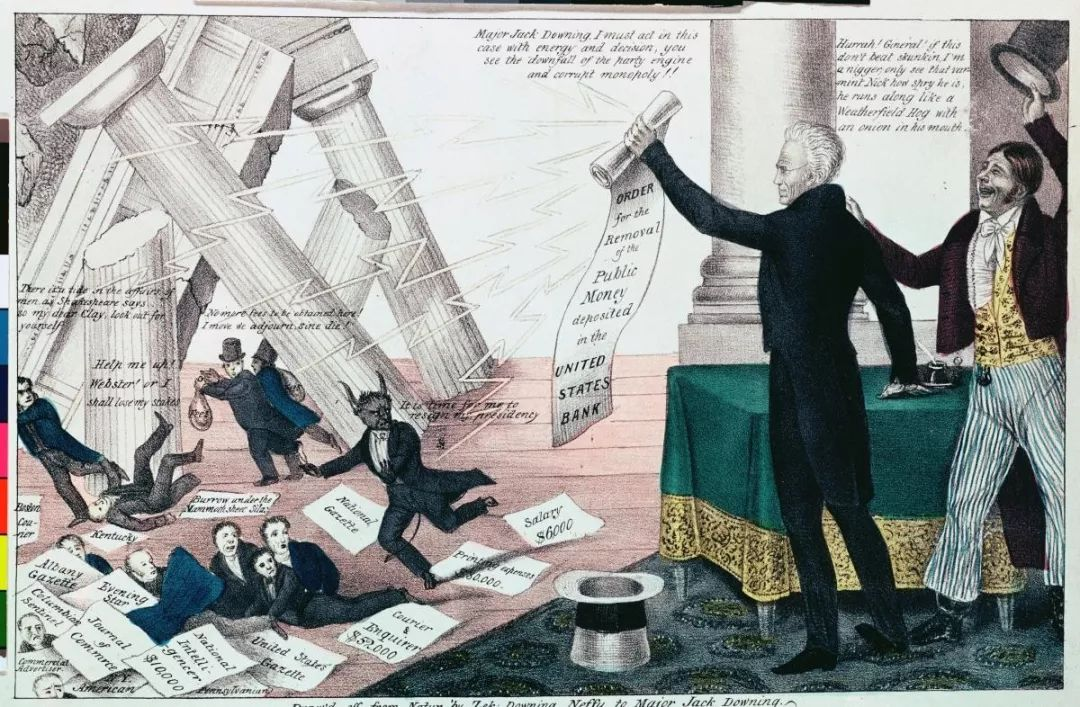 Major Jack Downing, I must act in this
case with energy and decision, you
see the downfall of the party engine
and corrupt monopoly!!
Hurrah! Gineral! if this
don't beat skunkin, I'm
a nigger, only see that var-
mint Nick how spry he is,
he runs along like a
Weatherfield Hog with
an onion in his mouth.
ORDER
for the
Removal
of the
Public
Money
deposited
in the
UNITED
STATES
BANK
There is a tide in the affairs of
men, as Shakespeare says
so my dear Clay, look out for
yourself
No more fees to be obtained here!
I move we adjourn, sine die!
Help me up!
Webster! or I
shall lose my stakes
Fees
It is time for me to
resign my presidency
Boston
Cou-
rier
Kentucky
Burrow under the
Mammoth sheet Sila
National
Gazette
Salary
$6000
Printing expenses
$80.000
Albany
Gazette
Evening
Star
Columbian
Sentinel
Journal
of
Commerce
National
Intelli-
gencer
$10,000
United States
Gazette
Courier
&
Enquirer
$52,000
Commercial
Advertiser
N.Y.
American
Pennsylvanian
Draw'd off from Natur by Zek. Downing, Neffu to Major Jack Downing.